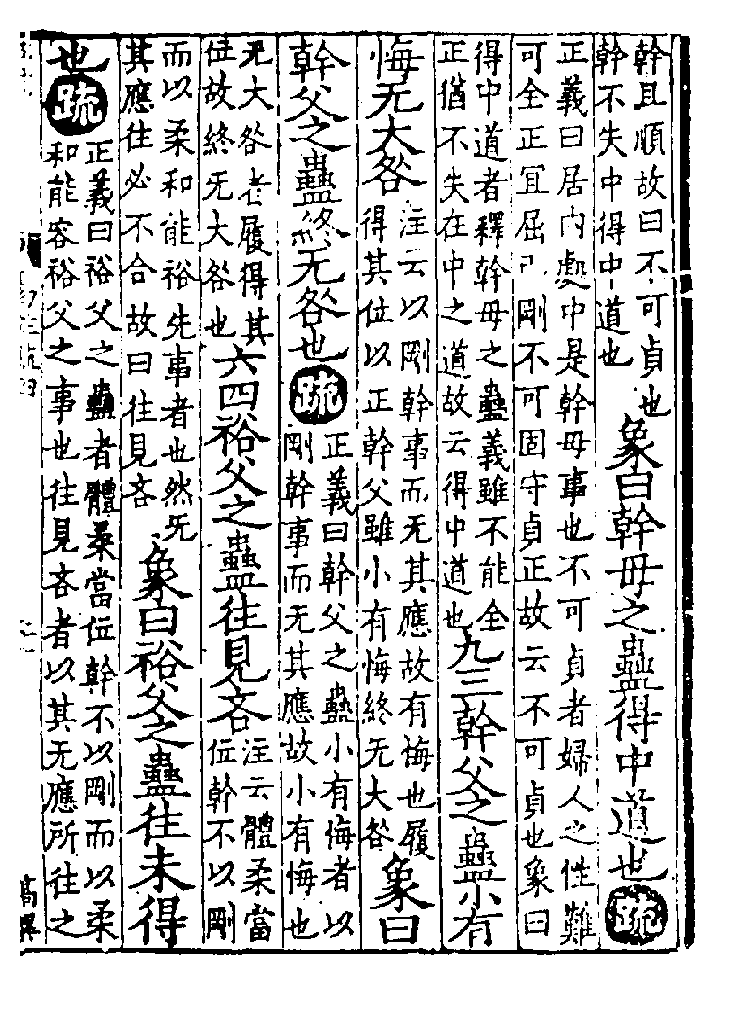 幹且順故曰不可貞也
幹不失中得中道也
象曰幹母之蠱得中道也疏
正義曰居内處中是幹母事也不可貞者婦人之性難
可全正宜屈已剛不可固守貞正故云不可貞也象曰
得中道者釋幹母之蠱義雖不能全
正猶不失在中之道故云得中道也
九三幹父之蠱小有
悔无大咎
注云以剛幹事而无其應故有悔也履
得其位以正幹父雖小有悔終无大咎
象曰
幹父之蠱終无咎也疏
正義曰幹父之蠱小有悔者以
剛幹事而无其應故小有悔也
无大咎者履得其
位故終无大咎也
六四裕父之蠱往見吝
注云體柔當
位幹不以剛
而以柔和能裕先事者也然无
其應往必不合故曰往見吝
象曰裕父之蠱往未得
也疏
正義曰裕父之蠱者體柔當位幹不以剛而以柔
和能容裕父之事也往見吝者以其无應所往之